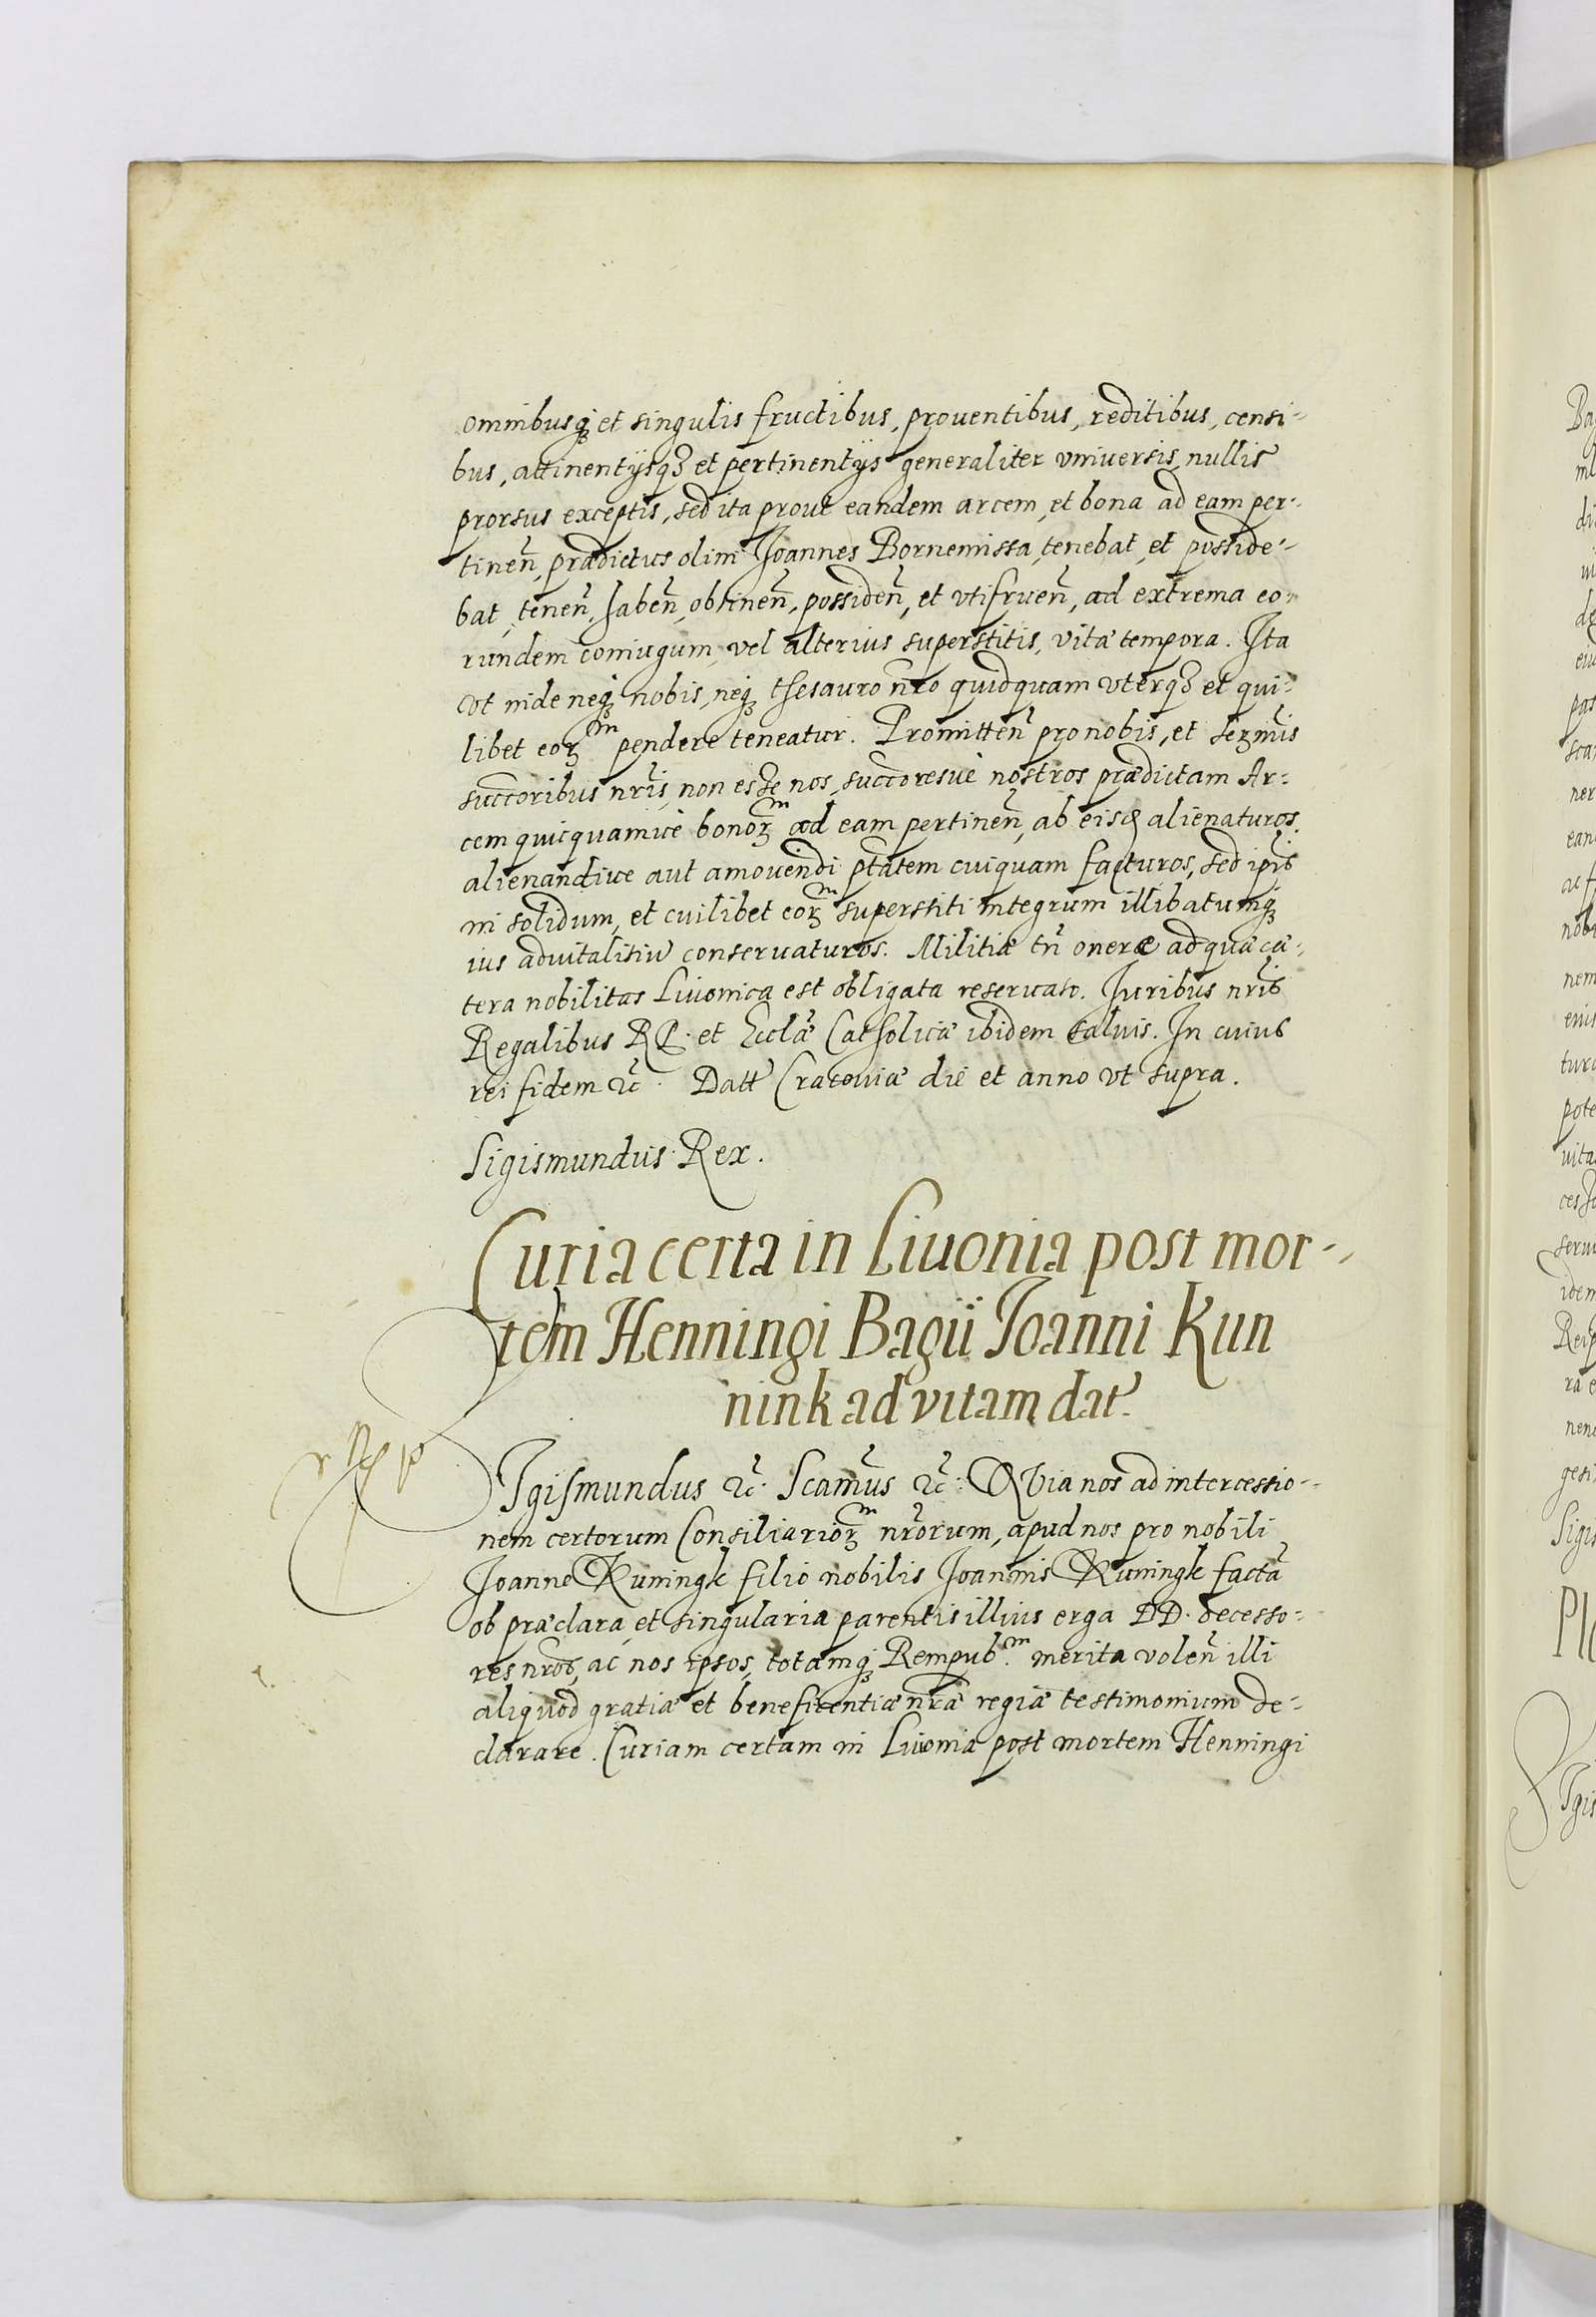 omnibusq₃ et singulis fructibus, prouentibus, reditibus, censi-
bus, attinentijsq₃ et pertinentijs generaliter vniuersis, nullis
prorsus exceptis, sed ita prout eandem arcem, et bona ad eam per-
tinen̄, prædictus olim Joannes Bornemissa, tenebat, et posside-
bat, tenen̄, haben̄, obtinen̄, possiden̄, et vtifruen̄, ad extrema eo-
rundem coniugum, vel alterius superstitis, vitæ tempora. Ita
vt inde neq₃ nobis, neq₃ thesauro nr̄o quidquam vterq₃ et qui-
libet eoꝝᵐ pendere teneatur. Promitten̄ pro nobis, et serm̄is
succoribus nr̄is, non esse nos, succoresuè nostros prædictam Ar-
cem quicquamuè bonoꝝᵐ ad eam pertinen̄, ab eisd alienaturos,
alienandiue aut amouendi ptātem cuiquam facturos, sed ip̄is
in solidum, et cuilibet eoꝝᵐ superstiti integrum illibatumq₃
ius aduitalitiū conseruaturos. Militiæ tn̄ onere ad quæ cæ-
tera nobilitas Liuonica est obligata reseruato. Iuribus nr̄is
Regalibus RP. et Ecclǣ Catholicæ ibidem saluis. In cuius
rei fidem ⁊c̄. Datt̄ Cracouiæ die et anno vt supra.
Sigismundus Rex.
Curia certa in Liuonia post mor-
tem Henningi Bagii Joanni Kun
nink ad vitam dat̄.
SIgismundus ⁊c̄. Scam̄us ⁊c̄: QVia nos ad intercessio-
nem certorum Consiliarioꝝᵐ nr̄orum, apud nos pro nobili
Joanne Kuningk filio nobilis Joannis Kuningk factā
ob præclara, et singularia parentis illius erga DD. decesso-
res nr̄os, ac nos ipsos, totamq₃ Rempub.ᵐ merita volen̄ illi
aliquod gratiæ et beneficentiæ nr̄æ regiæ testimonium de-
clarare. Curiam certam in Liuonia post mortem Henningi